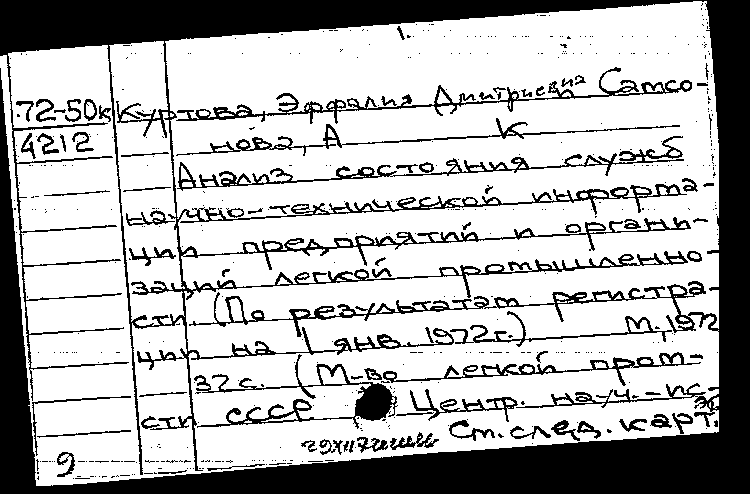 1.
72-50к Куртова, Эффалия Дмитриевна Самсо-
4212 нова, А К
Анализ состояния служб
научно-технической информа-
ции предприятий и органи-
заций легкой промышленно-
сти. (По результатам регистра-
ции на 1 янв. 1972 г.) М., 1972
32 с. (М-во легкой пром-
сти СССР Центр. науч.-ис-
См. след. карт.
9